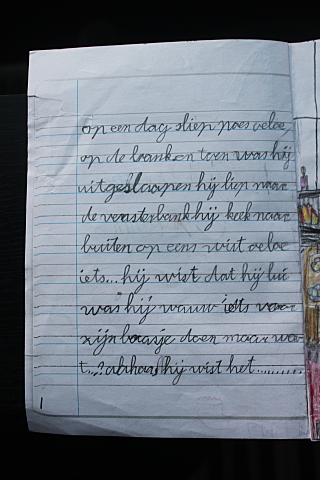 op een dag sliep poes veloe
op de bank en toen was hij
uitgeslaapen hij liep naar
de vensterbank hij keek naar
buiten op eens wist veloe
iets... hij wist dat hij lui
was hij wauw iets voor
zijn baasje doen maar wa
t...? ahhaa hij wist het..........
1